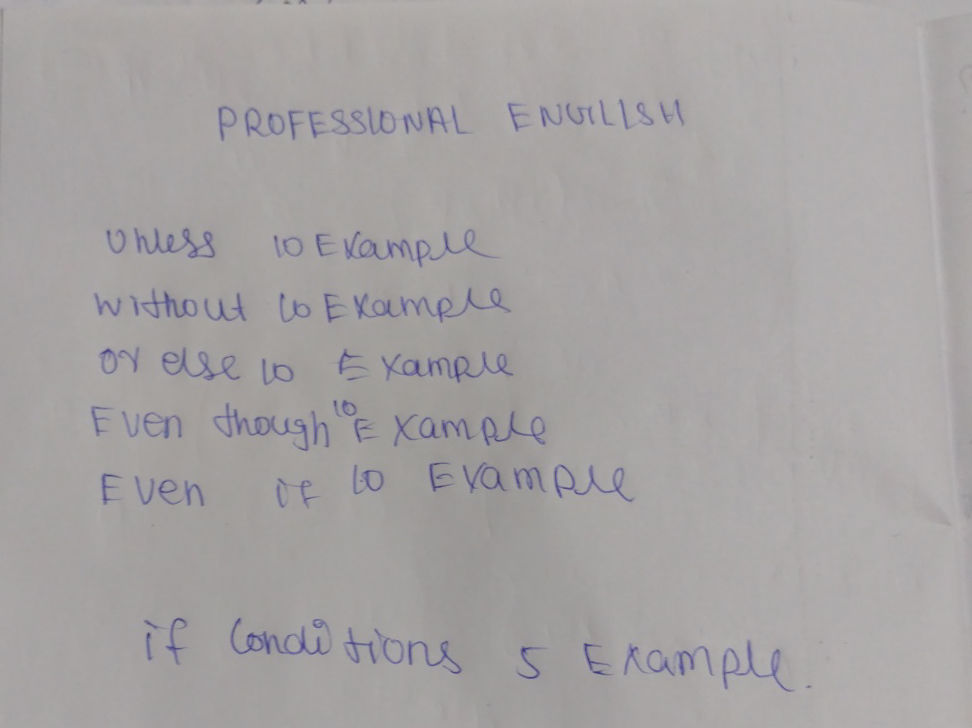 PROFESSIONAL ENGLISH
Unless 10 Example
without 10 Example
or else 10 Example
Even though 10 Example
Even if 10 Example
if Conditions 5 Example.